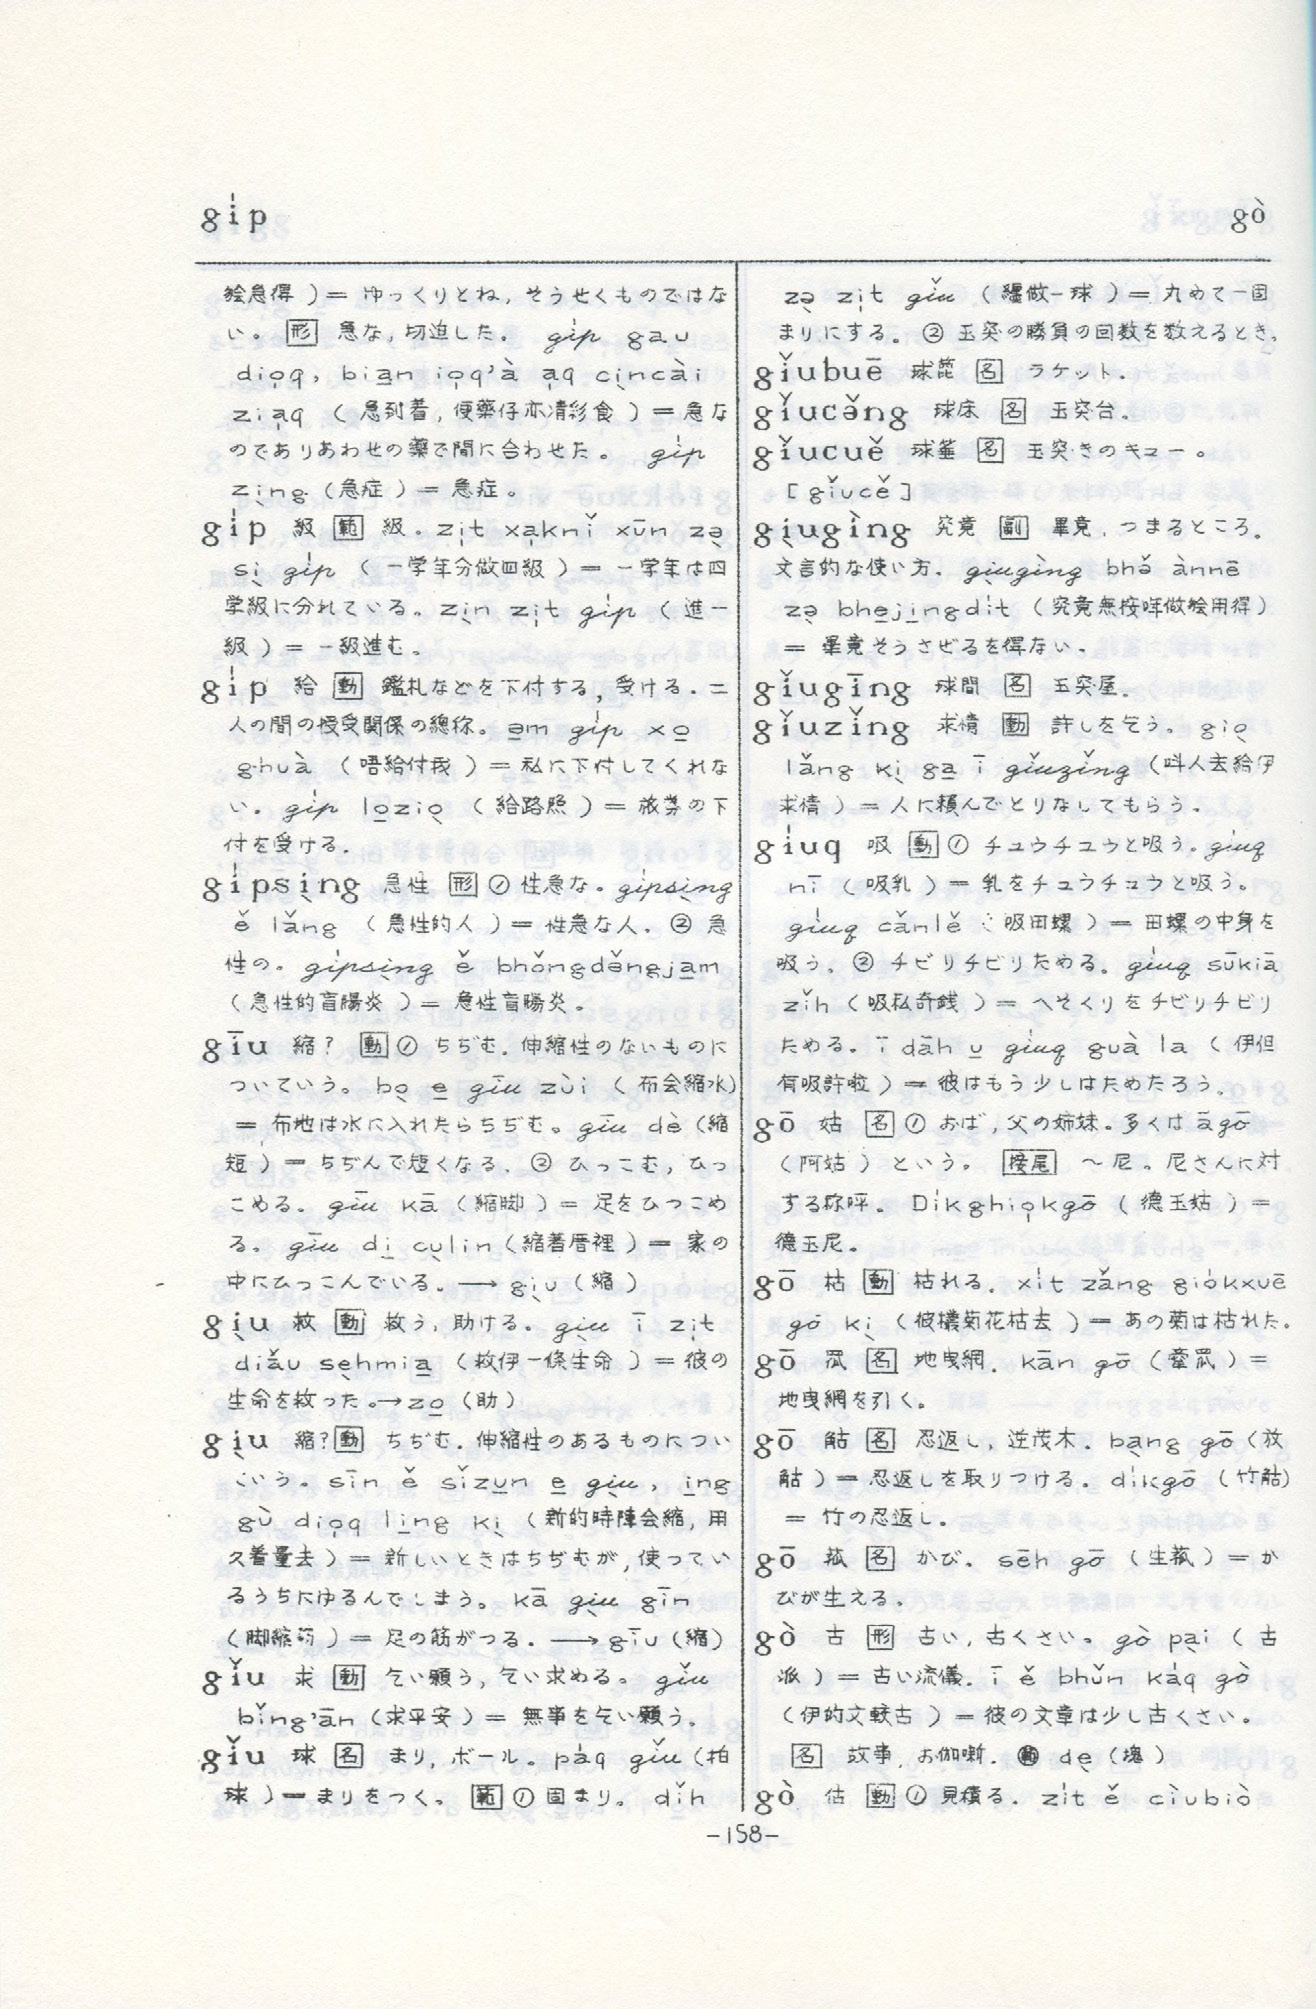 gi̍p
gò
絵急得）＝ ゆっくりとね，そうせくものではな
い。 形 急な，切迫した。 gi̍p gau
dio̩q, bia̱n io̩q'à a̩q ci̩ncài
zia̍q （急到着，便藥仔亦凊彩食）＝急な
のでありあわせの藥で間に合わせた。 gi̍p
zi̩ng（急症）＝急症。
gi̍p 級 範 級．zi̍t xaknǐ xūn zə
si̩ gi̍p （一学年分做四級）＝一学年は四
学級に分れている。zi̩n zi̍t gi̍p （進一
級）＝一級進む。
gi̍p 給 動 鑑札などを下付する，受ける．二
人の間の授受関係の總称。a̱m gi̍p xo̱
ghuà （唔給付我）＝私に下付してくれな
い．gi̍p lo̱zio̩ （給路照）＝旅券の下
付を受ける．
gi̍psi̩ng 急性 形 ① 性急な。gi̍psi̩ng
ě lǎng （急性的人）＝性急な人．② 急
性の。gi̍psi̩ng ě bhǒngděngja̱m
（急性的盲腸炎）＝急性盲腸炎。
gīu 縮？ 動 ① ちぢむ．伸縮性のないものに
ついていう。bo̩ e̱ gīu zùi （布会縮水）
＝布地は水に入れたらちぢむ。gīu dè（縮
短）＝ちぢんで短くなる．② ひっこむ，ひっ
こめる。gīu kā（縮脚）＝足をひっこめ
る。gīu di̩ cu̩lin（縮着厝裡）＝家の
中にひっこんでいる。→ gi̩u（縮）
gi̩u 救 動 救う，助ける．gi̩u ī zi̍t
diǎu se̱hmia̱ （救伊一條生命）＝彼の
生命を救った。→zo̱（助）
gi̩u 縮？動 ちぢむ．伸縮性のあるものについ
ていう。sīn ě sǐzu̱n e̱ gi̩u, i̱ng
gù dio̩q li̱ng ki̩（新的時陣会縮，用
久着量去）＝新しいときはちぢむが，使ってい
るうちにゆるんでしまう。kā gi̩u gīn
（脚縮筋）＝足の筋がつる．→gīu（縮）
gǐu 求 動 乞い願う，乞い求める。gǐu
bǐng'ān（求平安）＝無事を乞い願う。
gǐu 球 名 まり，ボール．pa̍q gǐu（拍
球）＝まりをつく。 範 ① 固まり。dǐh
zə̱ zi̍t gǐu （纏做一球）＝丸めて一固
まりにする。② 玉突の勝負の回数を数えるとき。
gǐubuē 球箆 名 ラケット．
gǐucə̌ng 球床 名 玉突台．
gǐucuě 球箠 名 玉突きのキュー。
［gǐucě］
gi̩ugìng 究竟 副 畢竟，つまるところ。
文言的な使い方．gi̩ugìng bhə̌ ànnē
zə̩ bhe̱ji̱ngdi̍t （究竟無按哖做絵用得）
＝畢竟そうさぜるを得ない．
gǐugīng 球間 名 玉突屋．
gǐuzǐng 求情 動 許しを乞う。gio̩
lǎng ki̩ ga̱ ī gǐuzǐng（叫人去給伊
求情）＝人に頼んでとりなしてもらう．
gi̍uq 吸 動 ① チュウチュウと吸う。gi̍uq
nī （吸乳）＝乳をチュウチュウと吸う。
gi̍uq cǎnlě （吸田螺）＝田螺の中身を
吸う。② チビリチビリためる。gi̍uq sūkiā
zǐh（吸私奇銭）＝へそくりをチビリチビリ
ためる．ī dāh u̱ gi̍uq guà la （伊但
有吸許啦）＝彼はもう少しはためたろう。
gō 姑 名 ① おば，父の姉妹．多くは āgō
（阿姑）という。 接尾 ～尼。尼さんに対
する称呼。Di̍kghio̩kgō（德玉姑）＝
德玉尼。
gō 枯 動 枯れる．xi̍t zǎng gio̍kxuē
gō ki̩ （彼欉菊花枯去）＝あの菊は枯れた．
gō 罛 名 地曳網．kān gō（牽罛）＝
地曳網を引く。
gō 𩵋 名 忍返し，逆茂木．ba̩ng gō（放
）＝忍返しを取りつける．di̍kgō（竹）
＝竹の忍返し．
gō 菰 名 かび。sēh gō （生菰）＝か
びが生える。
gò 古 形 古い，古くさい。gò pa̩i （古
派）＝古い流儀．ī ě bhǔn ka̍q gò
（伊的文較古）＝彼の文章は少し古くさい。
名 故事，お伽噺． de̩（塊）
gò 估 動 ① 見積る．zi̍t ě cìubiò
－158－